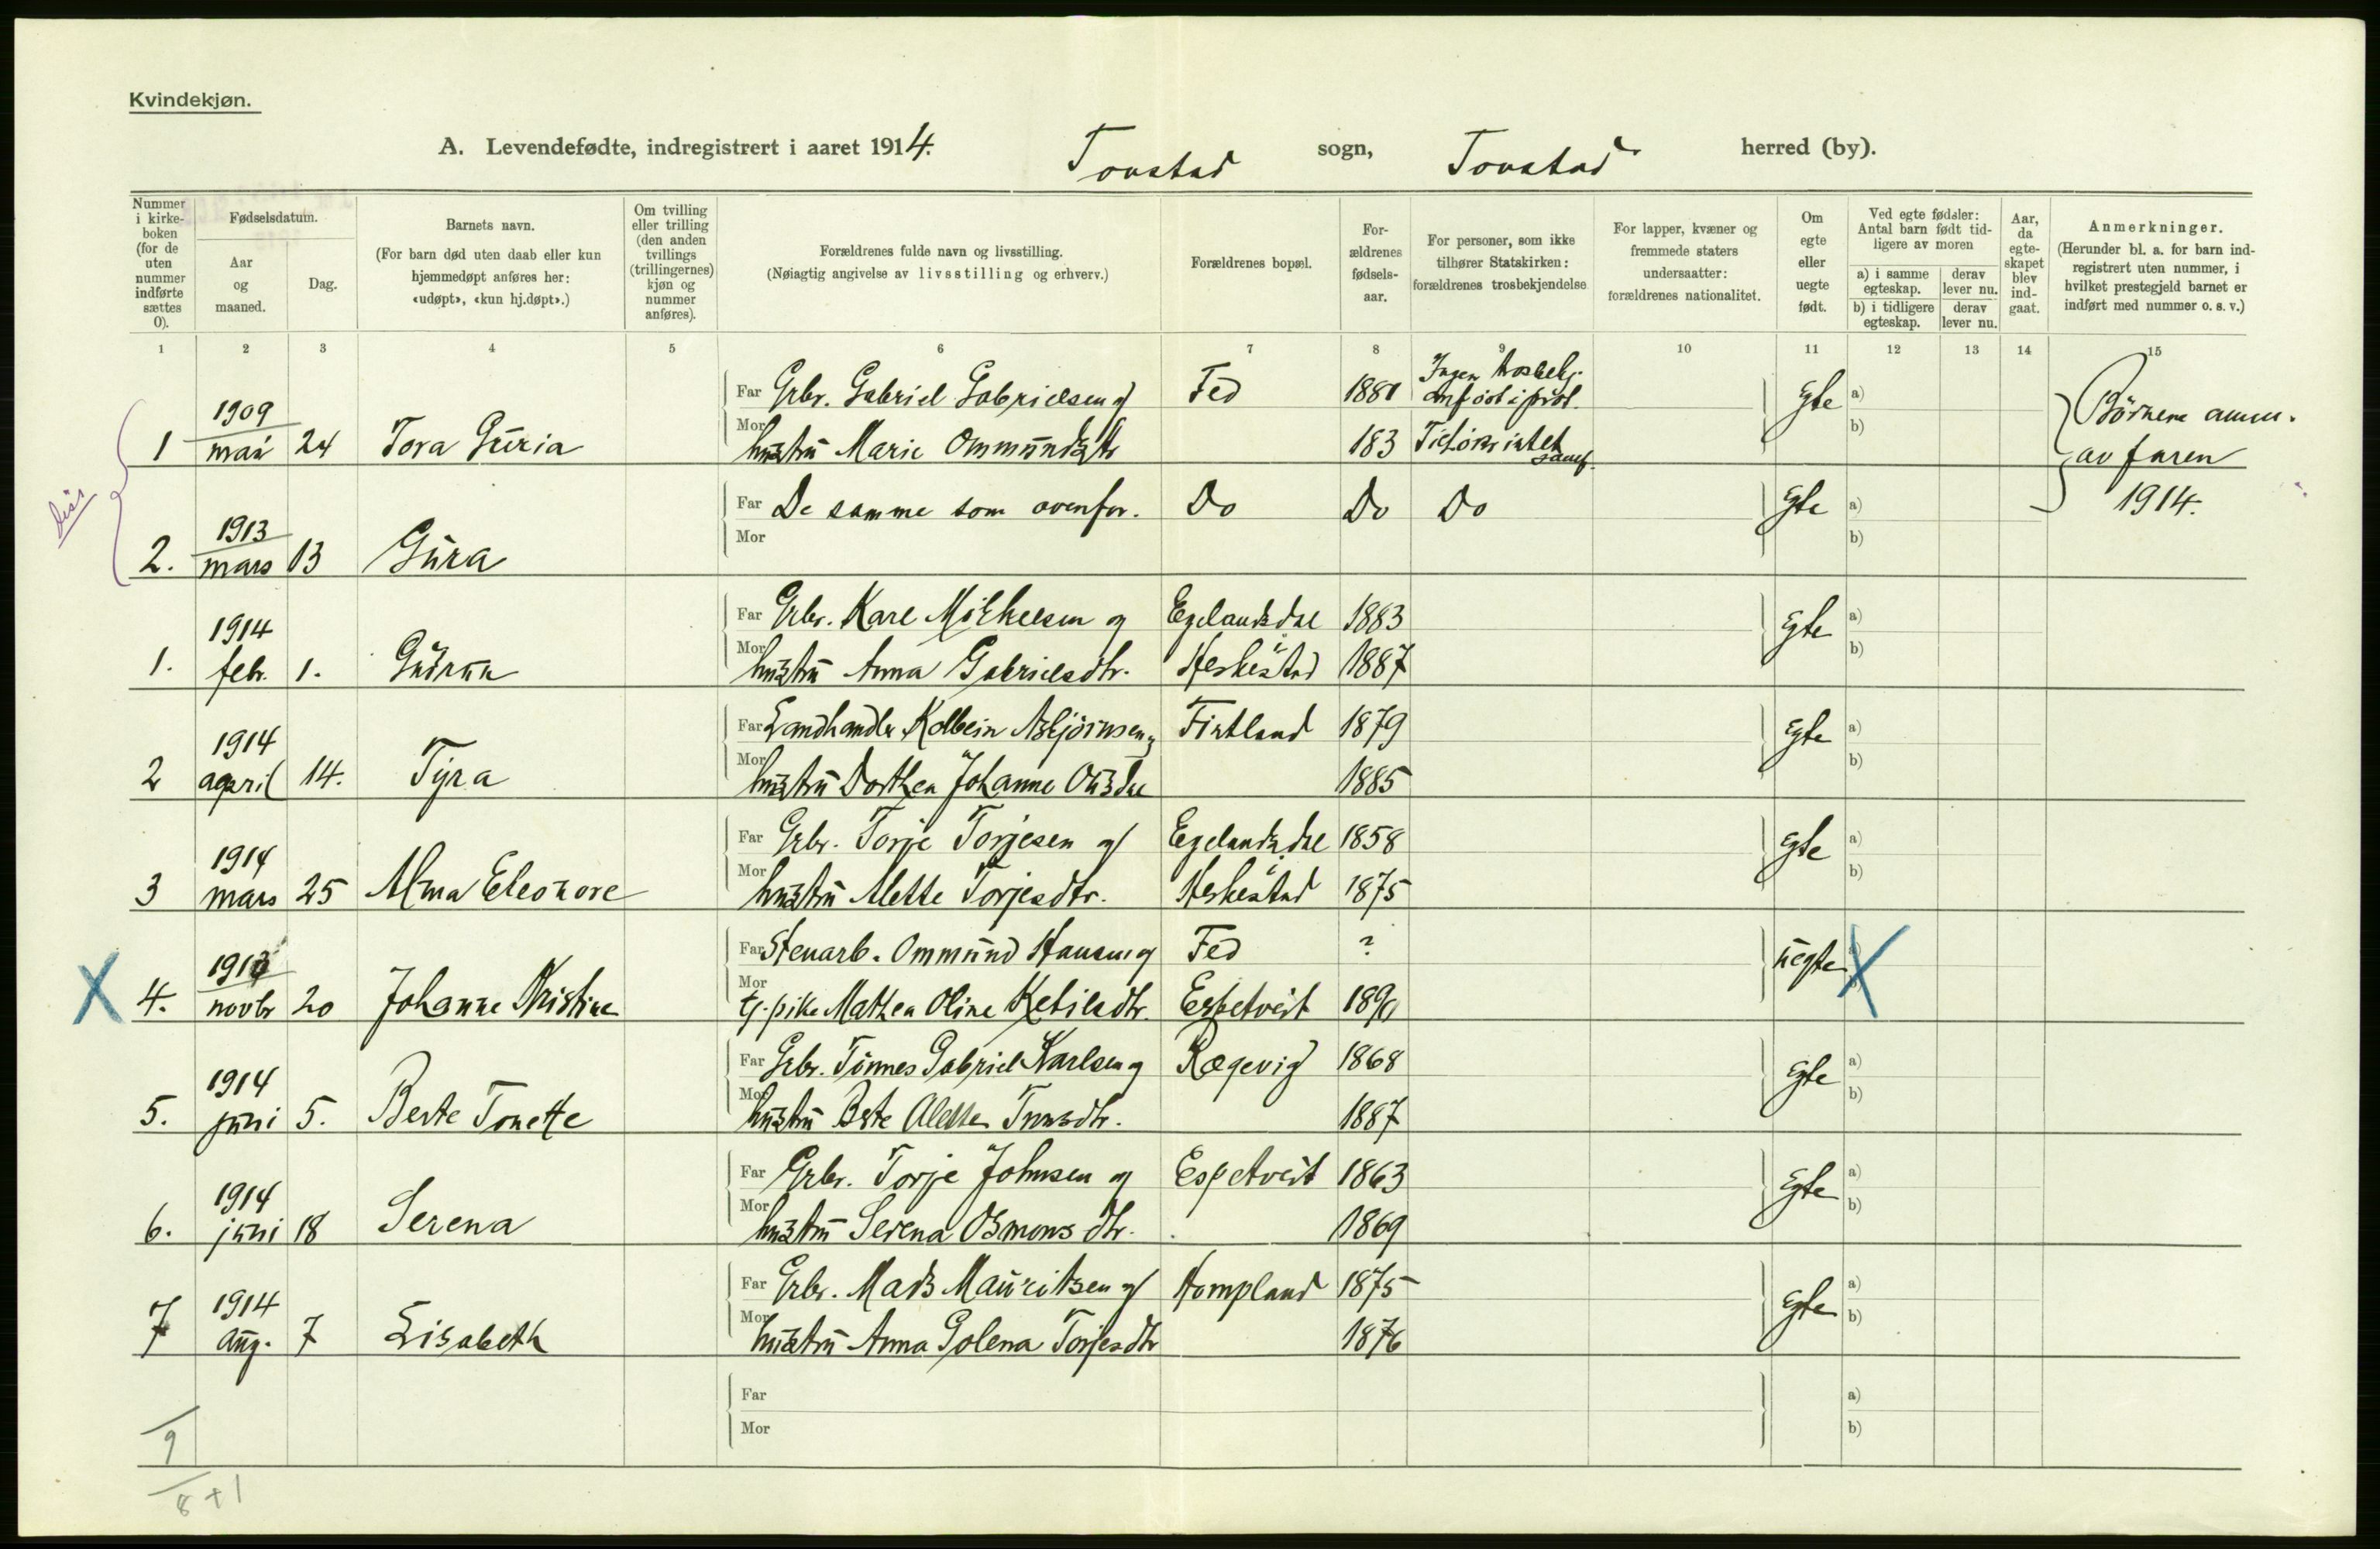 Kvindekjøn.
A. Levendefødte, indregistrert i aaret 1914. Tonstad sogn, Tonstad herred (by).
Nummer i kirkeboken (for de uten nummer indførte sættes 0).
Fødselsdatum.
Aar og maaned.
Dag.
Barnets navn.
(For barn død uten daab eller kun hjemmedøpt anføres her: «udøpt», «kun hj.døpt».)
Om tvilling eller trilling (den anden tvillings (trillingernes) kjøn og nummer anføres).
Forældrenes fulde navn og livsstilling.
(Nøiagtig angivelse av livsstilling og erhverv.)
Forældrenes bopæl.
Forældrenes fødselsaar.
For personer, som ikke tilhører Statskirken: forældrenes trosbekjendelse
For lapper, kvæner og fremmede staters undersaatter: forældrenes nationalitet.
Om egte eller uegte født.
Ved egte fødsler: Antal barn født tidligere av moren
a) i samme egteskap.
derav lever nu.
b) i tidligere egteskap.
derav lever nu.
Aar, da egteskapet blev indgaat.
Anmerkninger.
(Herunder bl. a. for barn indregistrert uten nummer, i hvilket prestegjeld barnet er indført med nummer o. s. v.)
1 2 3 4 5 6 7 8 9 10 11 12 13 14 15
Far Grbr. Gabriel Gabrielsen og Fed 1881 Ingen trosbekj. anført i prot. Egte a)
1 1909 mai 24 Tora Guria Mor hustru Marie Ommundsdtr 183 b) Børnene anm. av faren 1914.
Diss
Far De samme som ovenfor. Do Do Do Egte a)
2. 1913 mars 13 Gura Mor b)
Far Grbr. Karl Mikkelsen og Egelandsdal 1883 Egte a)
1. 1914 febr. 1. Gudrun Mor hustru Anna Gabrielsdtr. Heskestad 1887 b)
Far Landhandler Kolbein Asbjörnsen og Fintland 1879 Egte a)
2 1914 april 14. Tyra Mor hustru Dorthea Johanne Ousdal 1885 b)
Far Grbr. Torje Torjesen og Egelandsdal 1858 Egte a)
3 1914 mars 25 Alma Eleonore Mor hustru Alette Torjesdtr. Heskestad 1875 b)
Far Stenarb. Ommund Hansen og Fed ? Uegte a)
X 4. 1913 novbr 20 Johanne Kristine Mor tj.pike Mathea Oline Ketilsdtr. Espetveit 1891 X
Far Grbr. Tönnes Gabriel Karlsen og Rægevig 1868 Egte a)
5. 1914 juni 5. Berte Tonette Mor hustru Berte Alette 1887 b)
Far Grbr. Torje Johnsen og Espetveit 1863 Egte a)
6. 1914 juni 18 Serena Mor hustru Serena Osmonsdtr. 1869 b)
Far Grbr. Mads Mauritsen og Hompland 1875 Egte a)
7 1914 Aug. 7 Lisabeth Mor hustru Anna Golena Torjesdtr 1876 b)
Far a)
Mor b)
9
8 + 1